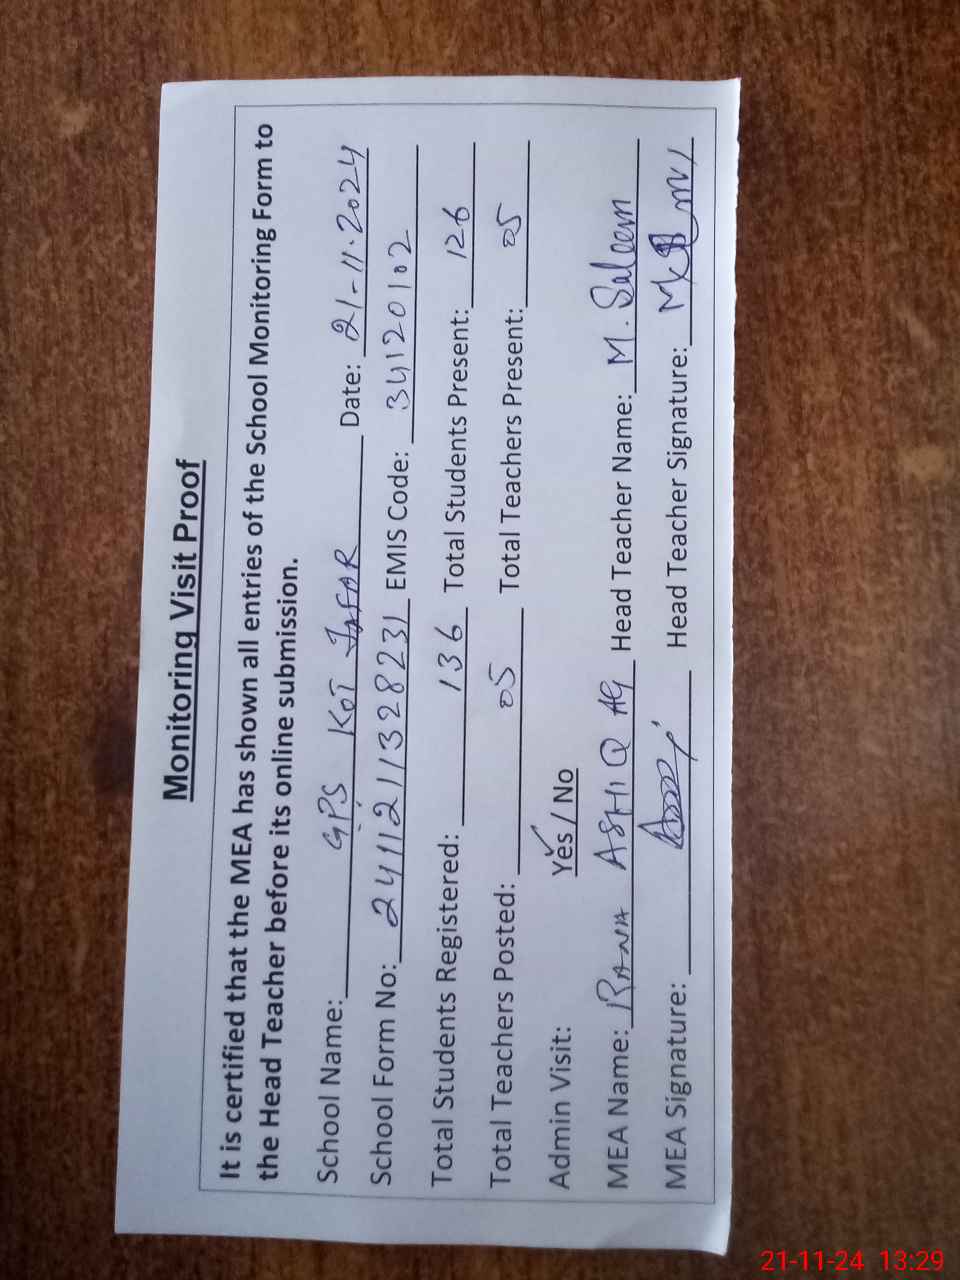 Monitoring Visit Proof
It is certified that the MEA has shown all entries of the School Monitoring Form to
the Head Teacher before its online submission.
School Name: GPS KOT JAFAR Date: 21-11-2024
School Form No: 2411121132 8231 EMIS Code: 34120102
Total Students Registered: 136 Total Students Present: 126
Total Teachers Posted: 05 Total Teachers Present: 05
Admin Visit: Yes / No
MEA Name: RANA ASHIQ Head Teacher Name: M. Saleem
MEA Signature: Head Teacher Signature:
21-11-24 13:29